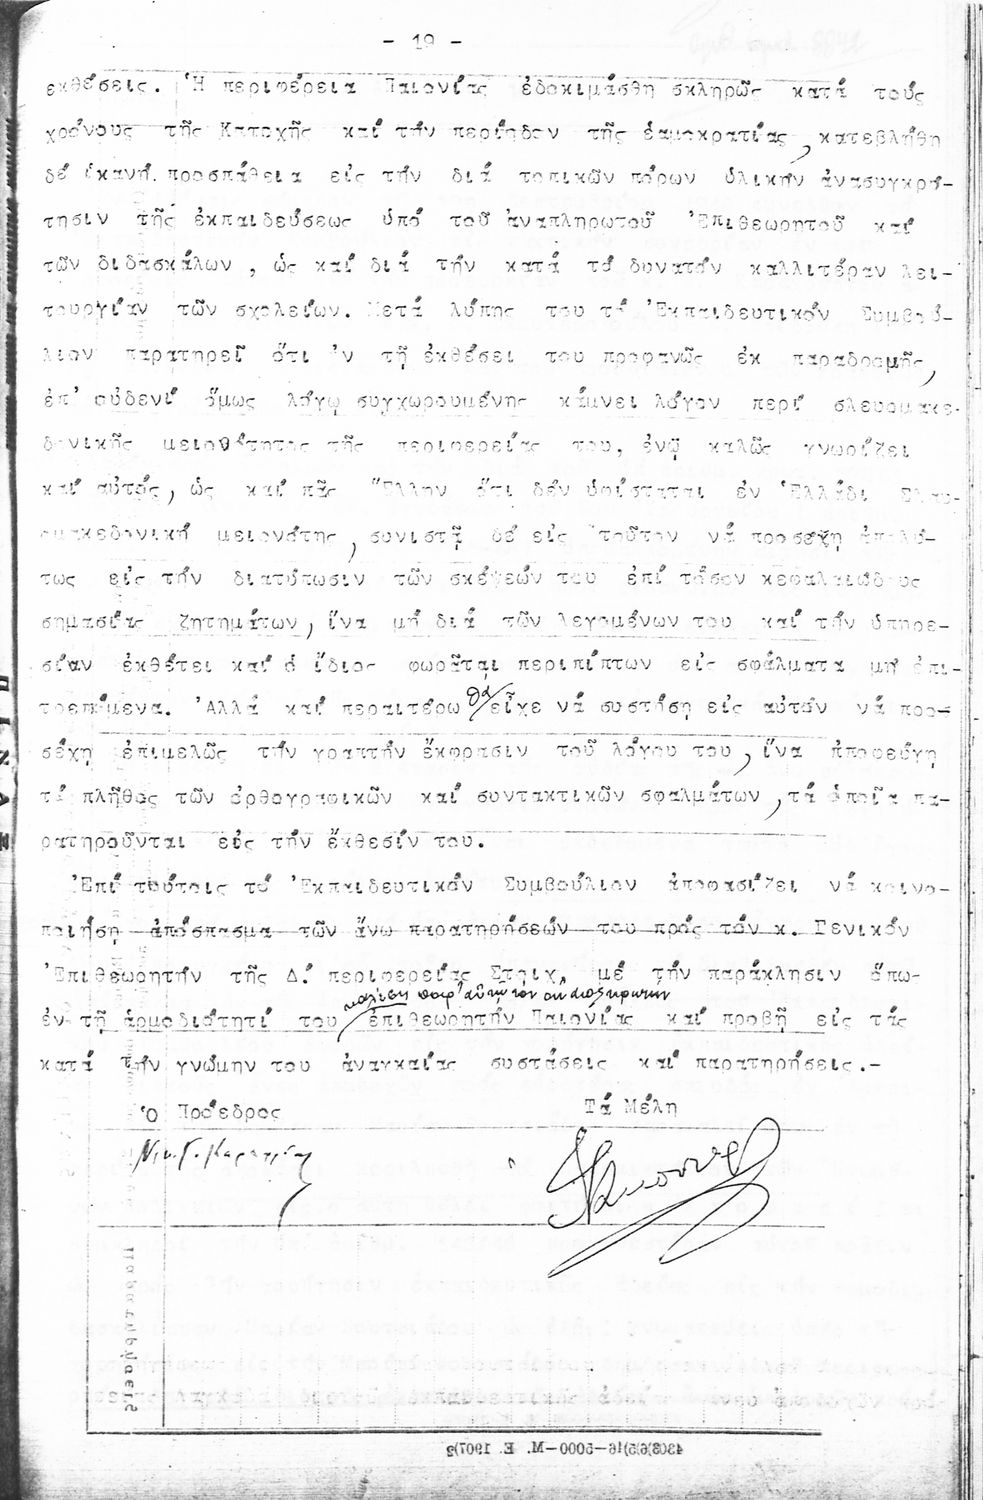 - 19 -
εκθέσεις. Ἡ περιφέρεια Παιονίας ἐδοκιμάσθη σκληρῶς κατά τούς
χρόνους τῆς Κατοχῆς καί τήν περίοδον τῆς ἑαμοκρατίας, κατεβλήθη
δέ ἱκανή προσπάθεια εἰς τήν διά τοπικῶν πόρων ὑλικήν ἀνασυγκρό-
τησιν τῆς ἐκπαιδεύσεως ὑπό τοῦ ἀναπληρωτοῦ Ἐπιθεωρητοῦ καί
τῶν διδασκάλων, ὡς καί διά τήν κατά τό δυνατόν καλλιτέραν λει-
τουργίαν τῶν σχολείων. Μετά λύπης του τό Ἐκπαιδευτικόν Συμβού-
λιον παρατηρεῖ ὅτι ἐν τῇ ἐκθέσει του προφανῶς ἐκ παραδρομῆς,
ἐπ' οὐδενί ὅμως λόγῳ συγχωρουμένης κάμνει λόγον περί σλαυομακε-
δονικῆς μειονότητος τῆς περιφερείας του, ἐνῷ καλῶς γνωρίζει
καί αὐτός, ὡς καί πᾶς Ἕλλην ὅτι δέν ὑφίσταται ἐν Ἑλλάδι Σλαυ-
ομακεδονική μειονότης, συνιστᾷ δέ εἰς τοῦτον νά προσέχῃ ἀπολύ-
τως εἰς τήν διατύπωσιν τῶν σκέψεών του ἐπί τόσον κεφαλαιώδους
σημασίας ζητημάτων, ἵνα μή διά τῶν λεγομένων του καί τήν ὑπηρε-
σίαν ἐκθέτει καί ὁ ἴδιος φωρᾶται περιπίπτων εἰς σφάλματα μή ἐπι-
τρεπόμενα. Ἀλλά καί περαιτέρω θά εἶχε νά συστήσῃ εἰς αὐτόν νά προ-
σέχῃ ἐπιμελῶς τήν γραπτήν ἔκφρασιν τοῦ λόγου του, ἵνα ἀποφεύγῃ
τό πλῆθος τῶν ὀρθογραφικῶν καί συντακτικῶν σφαλμάτων, τά ὁποῖα πα-
ρατηροῦνται εἰς τήν ἔκθεσίν του.
Ἐπί τούτοις τό Ἐκπαιδευτικόν Συμβούλιον ἀποφασίζει νά κοινο-
ποιήσῃ ἀπόσπασμα τῶν ἄνω παρατηρήσεών του πρός τόν κ. Γενικόν
Ἐπιθεωρητήν τῆς Δ. περιφερείας Στοιχ, μέ τήν παράκλησιν ὅπω-
καλέσῃ παρ' αὑτῷ τόν
ἐν τῇ ἁρμοδιότητί του ἐπιθεωρητήν Παιονίας καί προβῇ εἰς τάς
κατά τήν γνώμην του ἀναγκαίας συστάσεις καί παρατηρήσεις.-
Ὁ Πρόεδρος Τά Μέλη
παρατηρήσεις
4308(6)5)16-5000-Μ. Ε. 1907)2